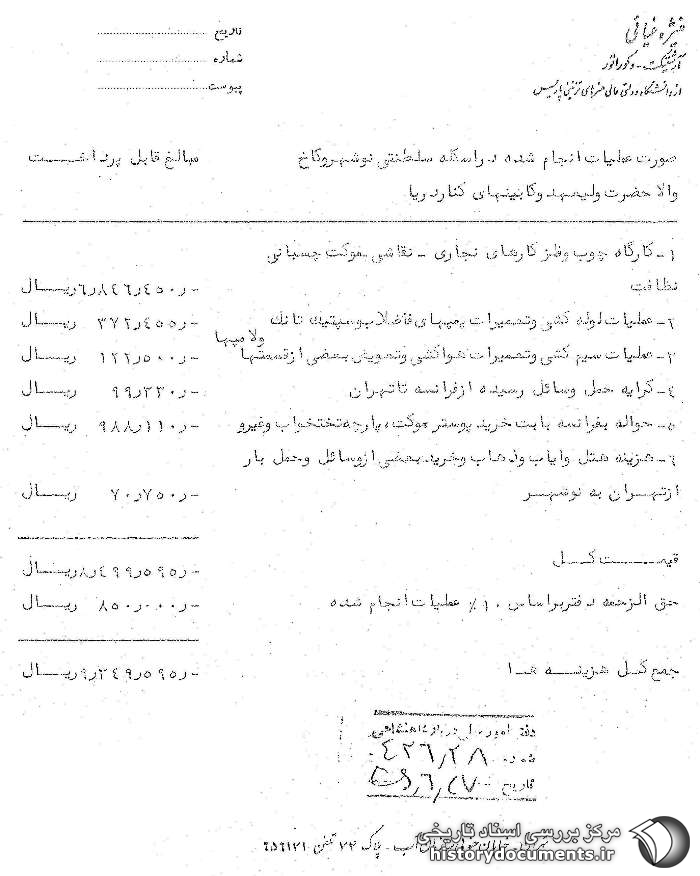 منیژه غیائی
آرشیتکت - دکوراتور
از دانشگاه دولتی عالی هنرهای تزئینی پاریس
تاریخ
شماره
پیوست
صورت عملیات انجام شده در اسکله سلطنتی نوشهر و کاخ مبالغ قابل پرداخت
والاحضرت ولیعهد و کابینهای کنار دریا
۱- کارگاه چوب و فلز کارهای نجاری - نقاشی موکت چسبانی
نظافت ۶٫۸۴۶٫۴۵۰٫- ریال
۲- عملیات لوله کشی و تعمیرات پمپهای فاضلاب و سپتیک تانک ۳۷۲٫۴۵۵٫- ریال
۳- عملیات سیم کشی و تعمیرات هواکشی و تعویض بعضی از قسمتها ولامپها ۱۲۲٫۵۰۰٫- ریال
۴- کرایه حمل وسائل رسیده از فرانسه تا تهران ۹۹٫۳۳۰٫- ریال
۵- حواله بفرانسه بابت خرید پوستر موکت، پارچه تختخواب وغیره ۹۸۸٫۱۱۰٫- ریال
۶- هزینه هتل و ایاب و ذهاب و خرید بعضی از وسائل و حمل بار
از تهران به نوشهر ۷۰٫۷۵۰٫- ریال
قیمت کل ۸٫۴۹۹٫۵۹۵٫- ریال
حق الزحمه دفتر بر اساس ۱۰٪ عملیات انجام شده ۸۵۰٫۰۰۰٫- ریال
جمع کل هزینه ها ۹٫۳۴۹٫۵۹۵٫- ریال
دفتر امور دربار شاهنشاهی
شماره ۴۲۶٫۲۸
تاریخ
پلاک ۲۲ تلفن ۶۵۶۱۲۱
مرکز بررسی اسناد تاریخی
historydocuments.ir